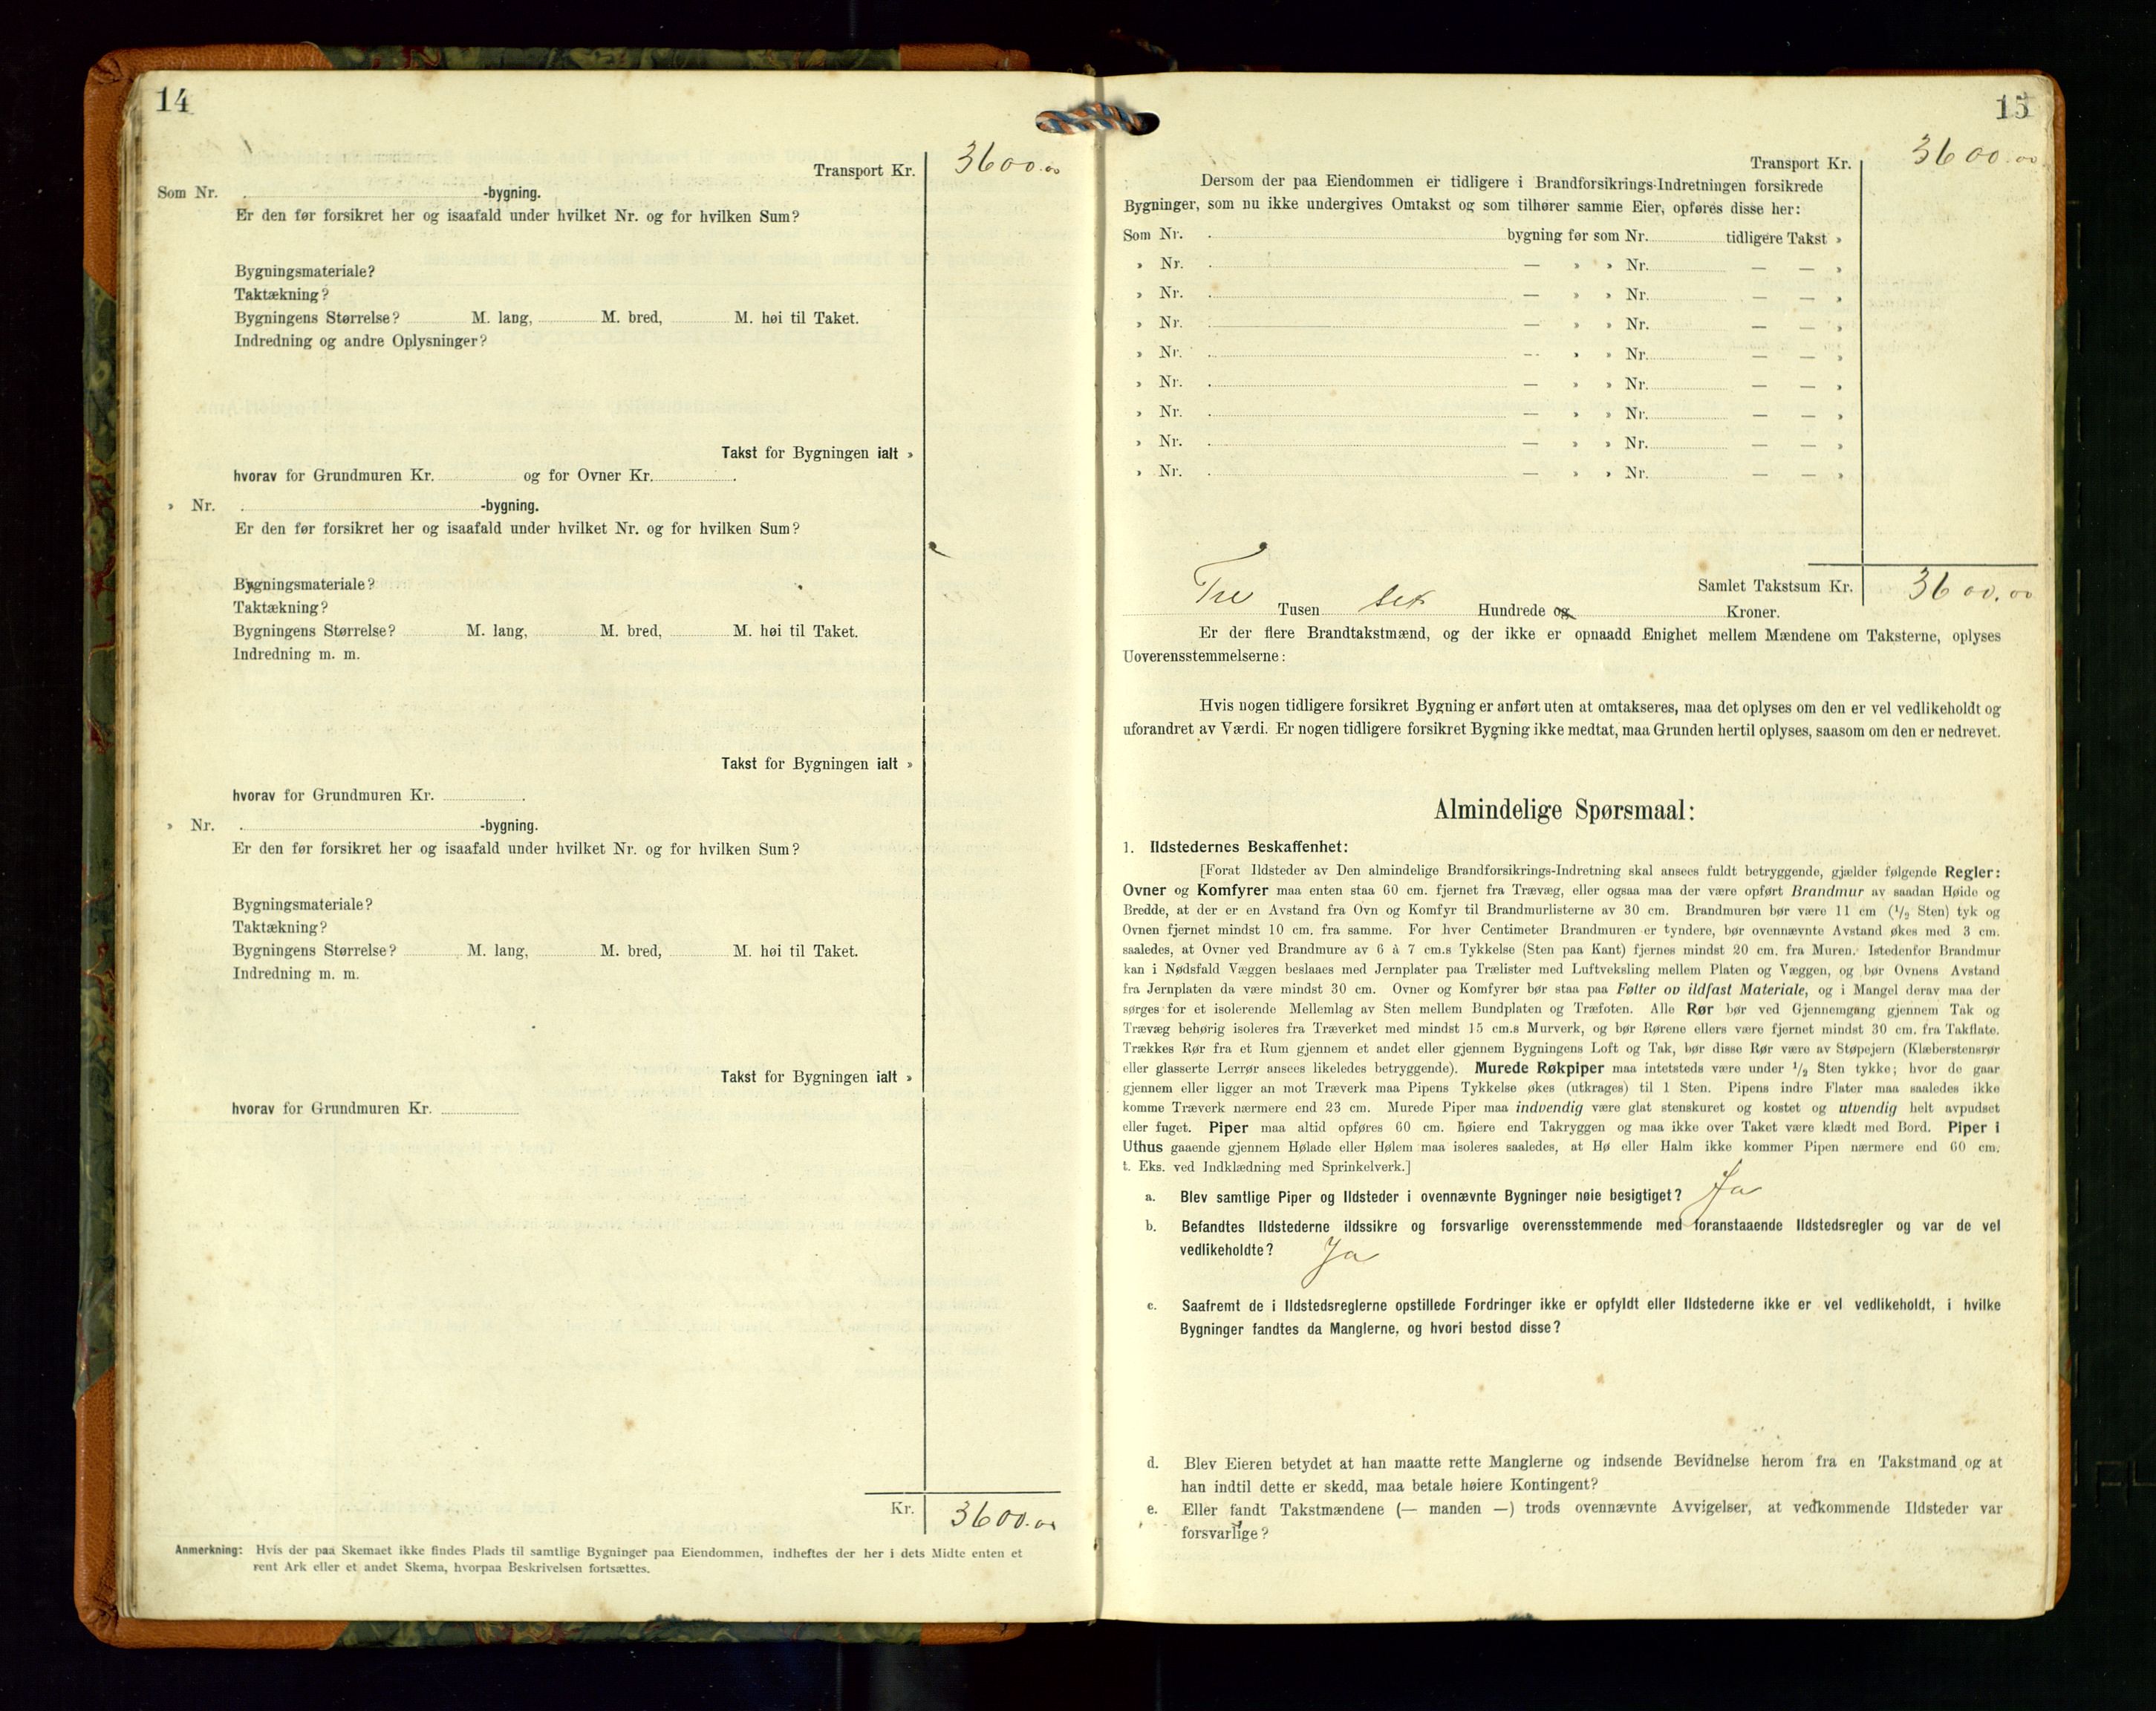 14
Transport Kr. 3600.00
Som Nr. -bygning.
Er den før forsikret her og isaafald under hvilket Nr. og for hvilken Sum?
Bygningsmateriale?
Taktækning?
Bygningens Størrelse? M. lang, M. bred, M. høi til Taket.
Indredning og andre Oplysninger?
Takst for Bygningen ialt »
hvorav for Grundmuren Kr. og for Ovner Kr.
» Nr. -bygning.
Er den før forsikret her og isaafald under hvilket Nr. og for hvilken Sum?
Bygningsmateriale?
Taktækning?
Bygningens Størrelse? M. lang, M. bred, M. høi til Taket.
Indredning m. m.
Takst for Bygningen ialt »
hvorav for Grundmuren Kr.
» Nr. -bygning.
Er den før forsikret her og isaafald under hvilket Nr. og for hvilken Sum?
Bygningsmateriale?
Taktækning?
Bygningens Størrelse? M. lang, M. bred, M. høi til Taket.
Indredning m. m.
Takst for Bygningen ialt »
hvorav for Grundmuren Kr.
Kr. 3600.00
Anmerkning: Hvis der paa Skemaet ikke findes Plads til samtlige Bygninger paa Eiendommen, indheftes der her i dets Midte enten et
rent Ark eller et andet Skema, hvorpaa Beskrivelsen fortsættes.
15
Transport Kr. 3600.00
Dersom der paa Eiendommen er tidligere i Brandforsikrings-Indretningen forsikrede
Bygninger, som nu ikke undergives Omtakst og som tilhører samme Eier, opføres disse her:
Som Nr. bygning før som Nr. tidligere Takst »
» Nr. — » » Nr. — — »
» Nr. — » » Nr. — — »
» Nr. — » » Nr. — — »
» Nr. — » » Nr. — — »
» Nr. — » » Nr. — — »
» Nr. — » » Nr. — — »
» Nr. — » » Nr. — — »
» Nr. — » » Nr. — — »
Samlet Takstsum Kr. 3600.00
Tre Tusen sex Hundrede og Kroner.
Er der flere Brandtakstmænd, og der ikke er opnaadd Enighet mellem Mændene om Taksterne, oplyses
Uoverensstemmelserne:
Hvis nogen tidligere forsikret Bygning er anført uten at omtakseres, maa det oplyses om den er vel vedlikeholdt og
uforandret av Værdi. Er nogen tidligere forsikret Bygning ikke medtat, maa Grunden hertil oplyses, saasom om den er nedrevet.
Almindelige Spørsmaal:
1. Ildstedernes Beskaffenhet:
[Forat Ildsteder av Den almindelige Brandforsikrings-Indretning skal ansees fuldt betryggende, gjælder følgende Regler:
Ovner og Komfyrer maa enten staa 60 cm. fjernet fra Trævæg, eller ogsaa maa der være opført Brandmur av saadan Høide og
Bredde, at der er en Avstand fra Ovn og Komfyr til Brandmurlisterne av 30 cm. Brandmuren bør være 11 cm (1/2 Sten) tyk og
Ovnen fjernet mindst 10 cm. fra samme. For hver Centimeter Brandmuren er tyndere, bør ovennævnte Avstand økes med 3 cm.
saaledes, at Ovner ved Brandmure av 6 à 7 cm.s Tykkelse (Sten paa Kant) fjernes mindst 20 cm. fra Muren. Istedenfor Brandmur
kan i Nødsfald Væggen beslaaes med Jernplater paa Trælister med Luftveksling mellem Platen og Væggen, og bør Ovnens Avstand
fra Jernplaten da være mindst 30 cm. Ovner og Komfyrer bør staa paa Føtter ov ildfast Materiale, og i Mangel derav maa der
sørges for et isolerende Mellemlag av Sten mellem Bundplaten og Træfoten. Alle Rør bør ved Gjennemgang gjennem Tak og
Trævæg behørig isoleres fra Træverket med mindst 15 cm.s Murverk, og bør Rørene ellers være fjernet mindst 30 cm. fra Takflate.
Trækkes Rør fra et Rum gjennem et andet eller gjennem Bygningens Loft og Tak, bør disse Rør være av Støpejern (Klæberstensrør
eller glasserte Lerrør ansees likeledes betryggende). Murede Røkpiper maa intetsteds være under 1/2 Sten tykke; hvor de gaar
gjennem eller ligger an mot Træverk maa Pipens Tykkelse økes (utkrages) til 1 Sten. Pipens indre Flater maa saaledes ikke
komme Træverk nærmere end 23 cm. Murede Piper maa indvendig være glat stenskuret og kostet og utvendig helt avpudset
eller fuget. Piper maa altid opføres 60 cm. høiere end Takryggen og maa ikke over Taket være klædt med Bord. Piper i
Uthus gaaende gjennem Hølade eller Hølem maa isoleres saaledes, at Hø eller Halm ikke kommer Pipen nærmere end 60 cm.
t. Eks. ved Indklædning med Sprinkelverk.]
a. Blev samtlige Piper og Ildsteder i ovennævnte Bygninger nøie besigtiget? Ja
b. Befandtes Ildstederne ildssikre og forsvarlige overensstemmende med foranstaaende Ildstedsregler og var de vel
vedlikeholdte? Ja
c. Saafremt de i Ildstedsreglerne opstillede Fordringer ikke er opfyldt eller Ildstederne ikke er vel vedlikeholdt, i hvilke
Bygninger fandtes da Manglerne, og hvori bestod disse?
d. Blev Eieren betydet at han maatte rette Manglerne og indsende Bevidnelse herom fra en Takstmand og at
han indtil dette er skedd, maa betale høiere Kontingent?
e. Eller fandt Takstmændene (— manden —) trods ovennævnte Avvigelser, at vedkommende Ildsteder var
forsvarlige?